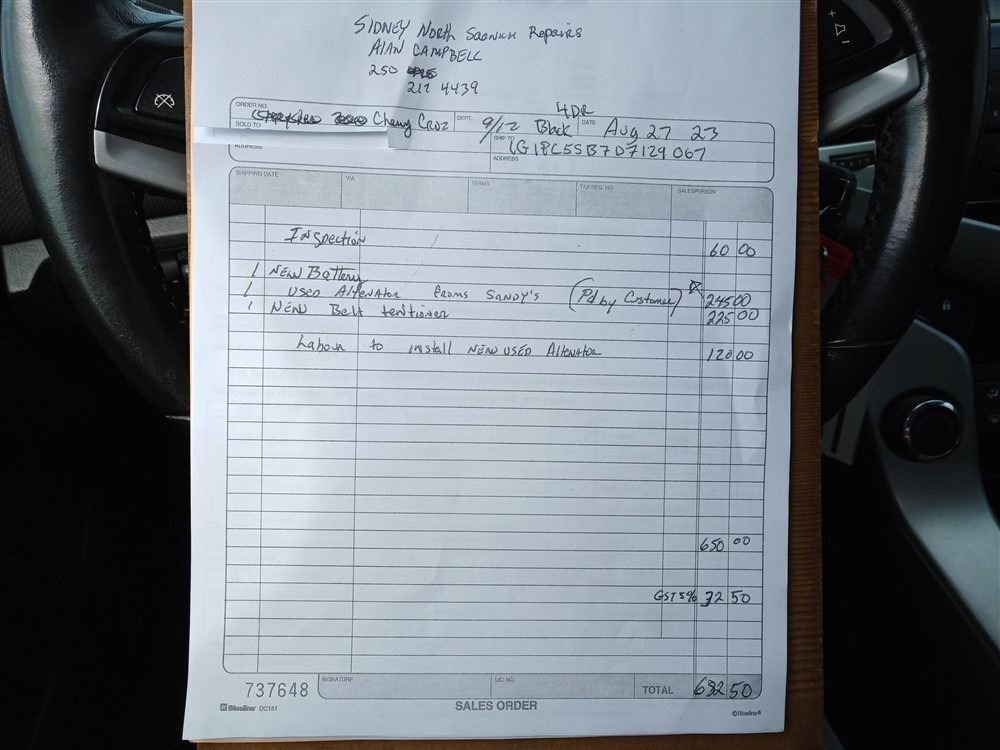 SIDNEY North Saanich Repairs
ALAN CAMPBELL
250
217 4439
ORDER NO. Chevy CRUZ DEPT. 9/12 4DR Black DATE Aug 27 23
SOLD TO SHIP TO 1G1PC5SB7D7129067
ADDRESS ADDRESS
SHIPPING DATE VIA TERMS TAX REG. NO. SALESPERSON
Inspection 60 00
1 NEW Battery
1 USED AltenAtor froms SANDY'S (Pd by Customer) 245 00
1 NEW Belt tentioner 225 00
Labour to install NEW USED AltenAtor 120 00
650 00
GST 5% 32 50
737648 SIGNATURE LIC. NO. TOTAL 682 50
Blueline DC151 SALES ORDER Blueline